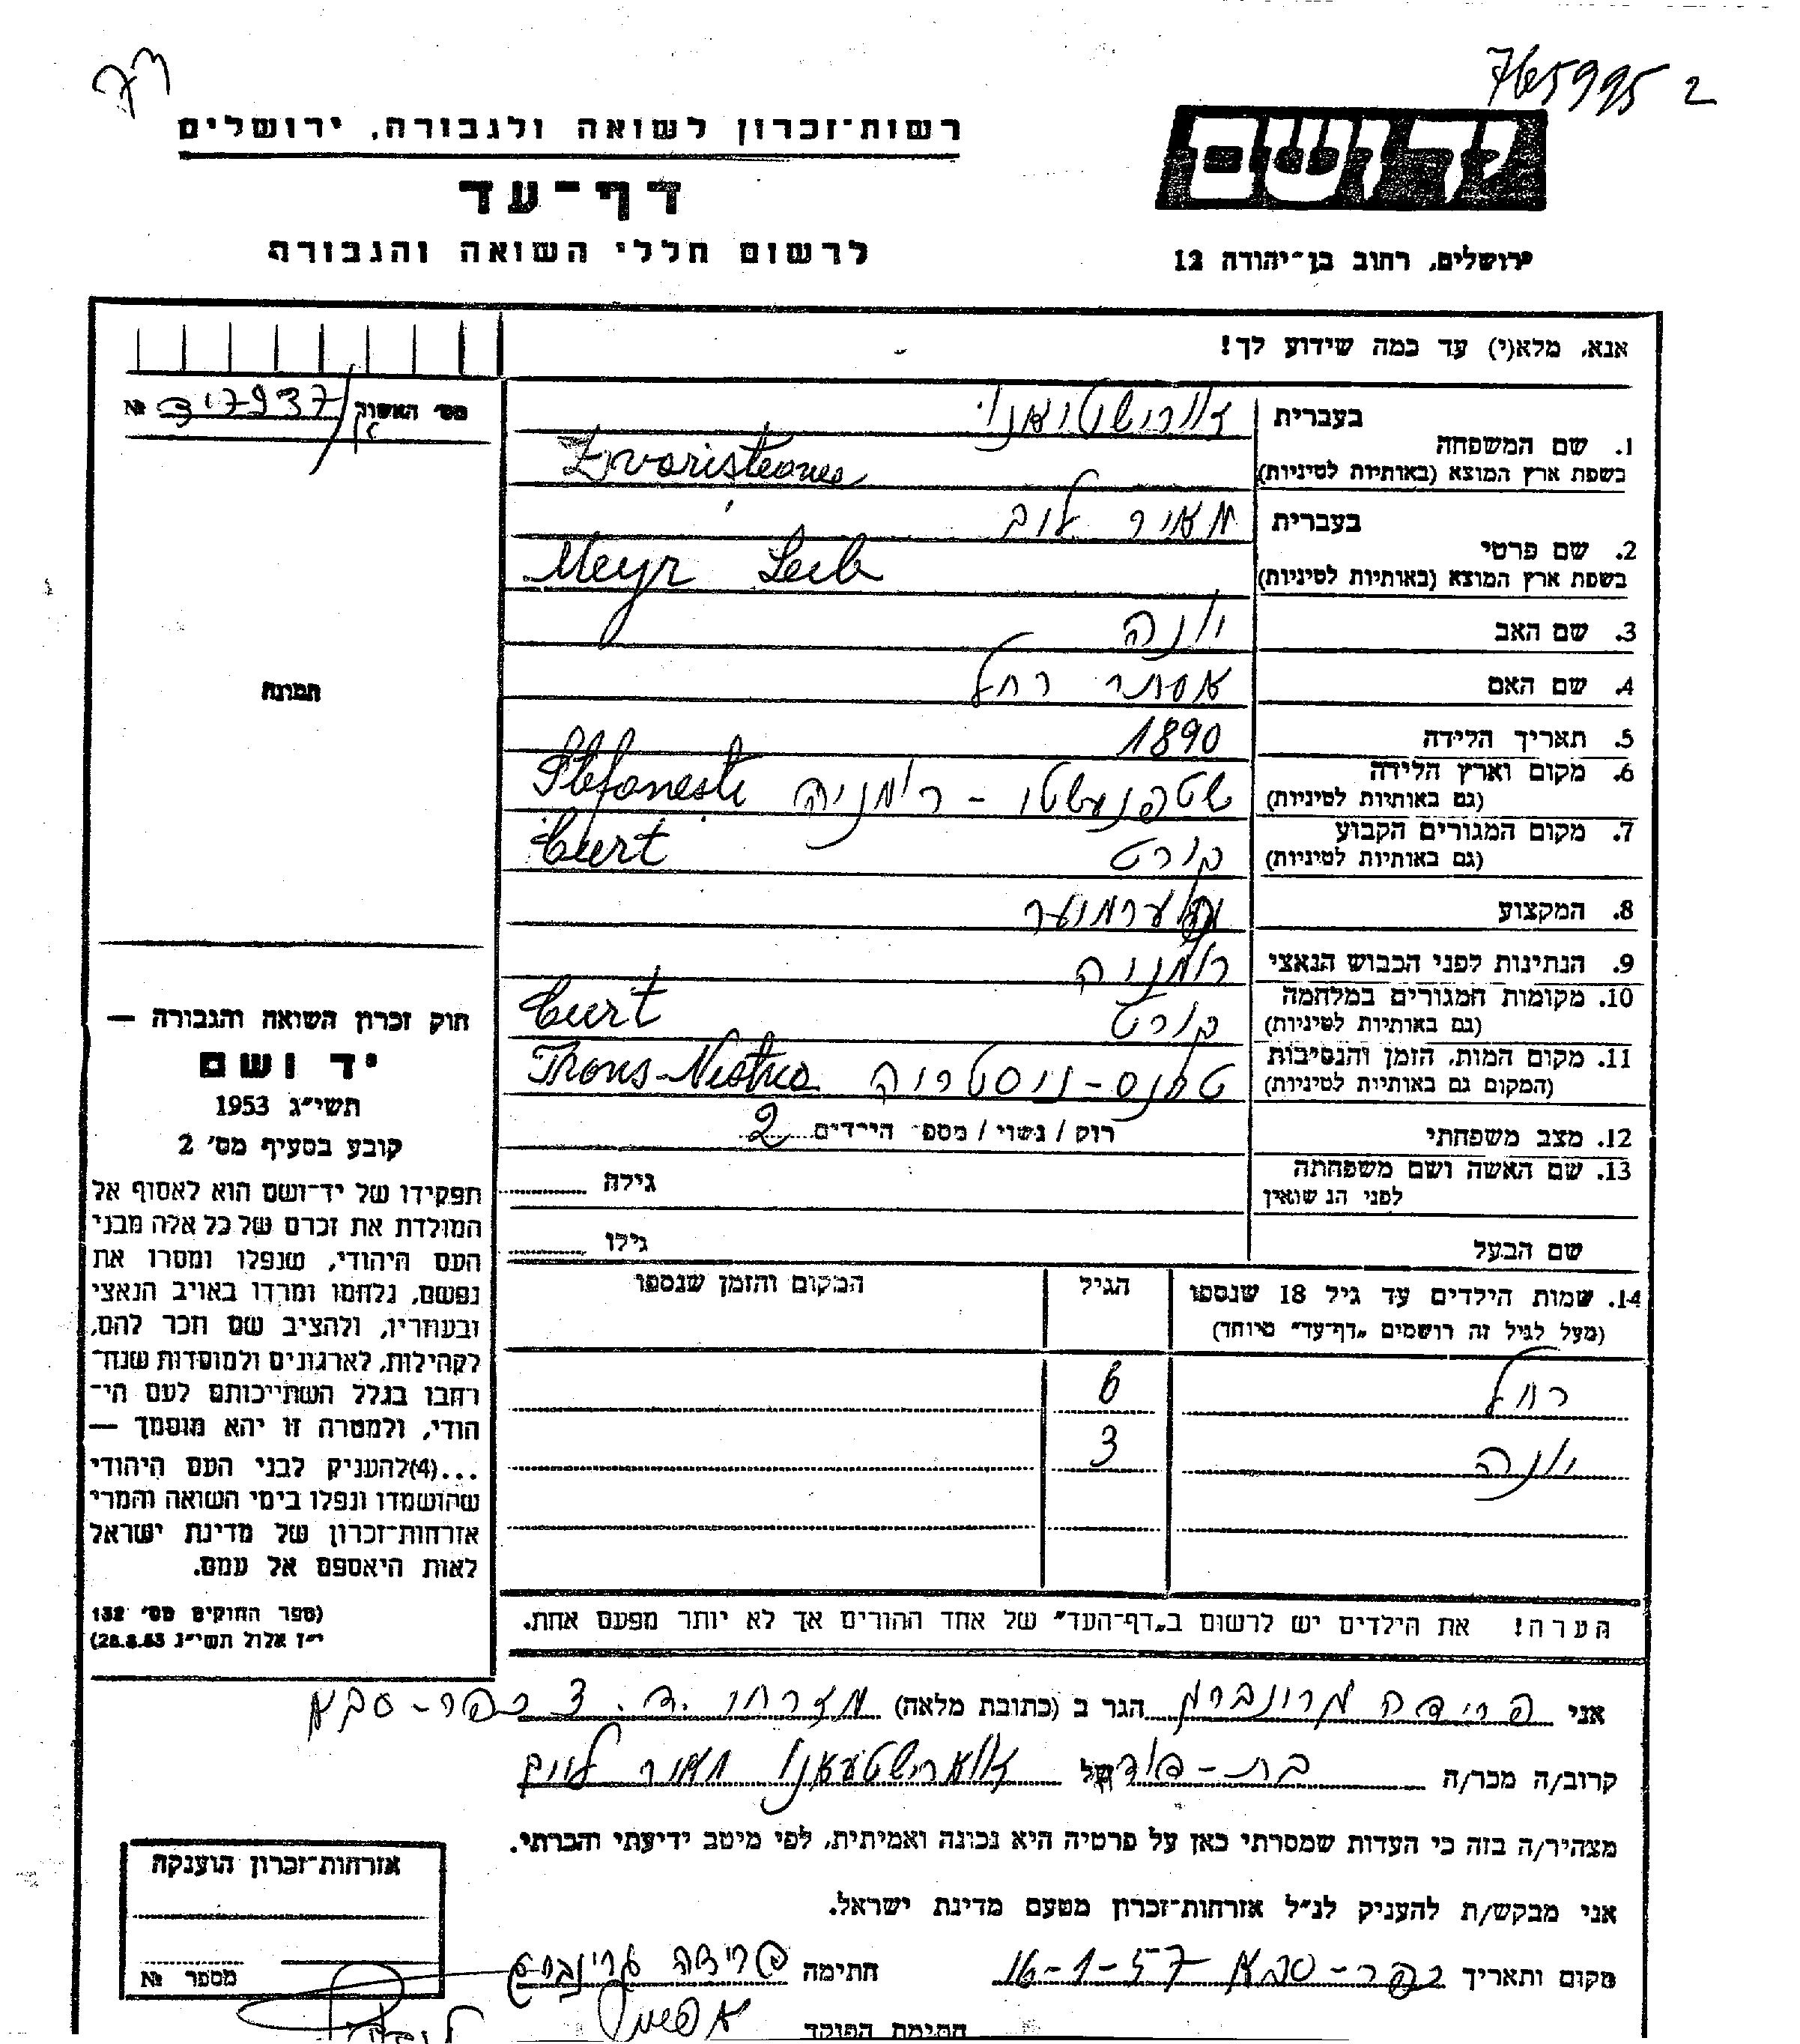 765995 2
רשות־זכרון לשואה ולגבורה, ירושלים
דף־עד
לרשום חללי השואה והגבורה
ידושם
ירושלים, רחוב בן־יהודה 12
אנא, מלא(י) עד כמה שידוע לך!
מס' האשור № 317937
1. שם המשפחה
בעברית
בשפת ארץ המוצא (באותיות לטיניות)
Zvoristeanu
2. שם פרטי
בעברית מאיר לוב
בשפת ארץ המוצא (באותיות לטיניות) Meyr Leib
3. שם האב יונה
4. שם האם אסתר רחל
5. תאריך הלידה 1890
6. מקום וארץ הלידה שטפנעשטי - רומניה Stefanesti
(גם באותיות לטיניות)
7. מקום המגורים הקבוע קורט Curt
(גם באותיות לטיניות)
8. המקצוע
9. הנתינות לפני הכבוש הנאצי רומניה
10. מקומות המגורים במלחמה קורט Curt
(גם באותיות לטיניות)
11. מקום המות, הזמן והנסיבות טרנס-ניסטריה Trans-Nistria
(המקום גם באותיות לטיניות)
12. מצב משפחתי רוק / נשוי / מספ' הילדים 2
13. שם האשה ושם משפחתה גילה
לפני הנשואין
שם הבעל גילו
14. שמות הילדים עד גיל 18 שנספו הגיל המקום והזמן שנספו
(מעל לגיל זה רושמים „דף־עד" מיוחד)
רחל 6
יונה 3
הערה! את הילדים יש לרשום ב„דף־העד" של אחד ההורים אך לא יותר מפעם אחת.
תמונה
חוק זכרון השואה והגבורה —
יד ושם
תשי״ג 1953
קובע בסעיף מס' 2
תפקידו של יד־ושם הוא לאסוף אל
המולדת את זכרם של כל אלה מבני
העם היהודי, שנפלו ומסרו את
נפשם, נלחמו ומרדו באויב הנאצי
ובעוזריו, ולהציב שם וזכר להם,
לקהילות, לארגונים ולמוסדות שנח־
רבו בגלל השתייכותם לעם הי־
הודי, ולמטרה זו יהא מוסמך —
...(4) להעניק לבני העם היהודי
שהושמדו ונפלו בימי השואה והמרי
אזרחות־זכרון של מדינת ישראל
לאות היאספם אל עמם.
(ספר החוקים מס' 132
י״ז אלול תשי״ג 28.8.53)
אני פרידה גרונברג הגר ב (כתובת מלאה) מזרחי ד. 3 כפר-סבא
קרוב/ה מכר/ה בת-דוד של מאיר לייב
מצהיר/ה בזה כי העדות שמסרתי כאן על פרטיה היא נכונה ואמיתית, לפי מיטב ידיעתי והכרתי.
אני מבקש/ת להעניק לנ״ל אזרחות־זכרון מטעם מדינת ישראל.
מקום ותאריך כפר-סבא 16-1-57 חתימה פרידה גרינברג
חתימת הפוקד
אזרחות־זכרון הוענקה
מספר №